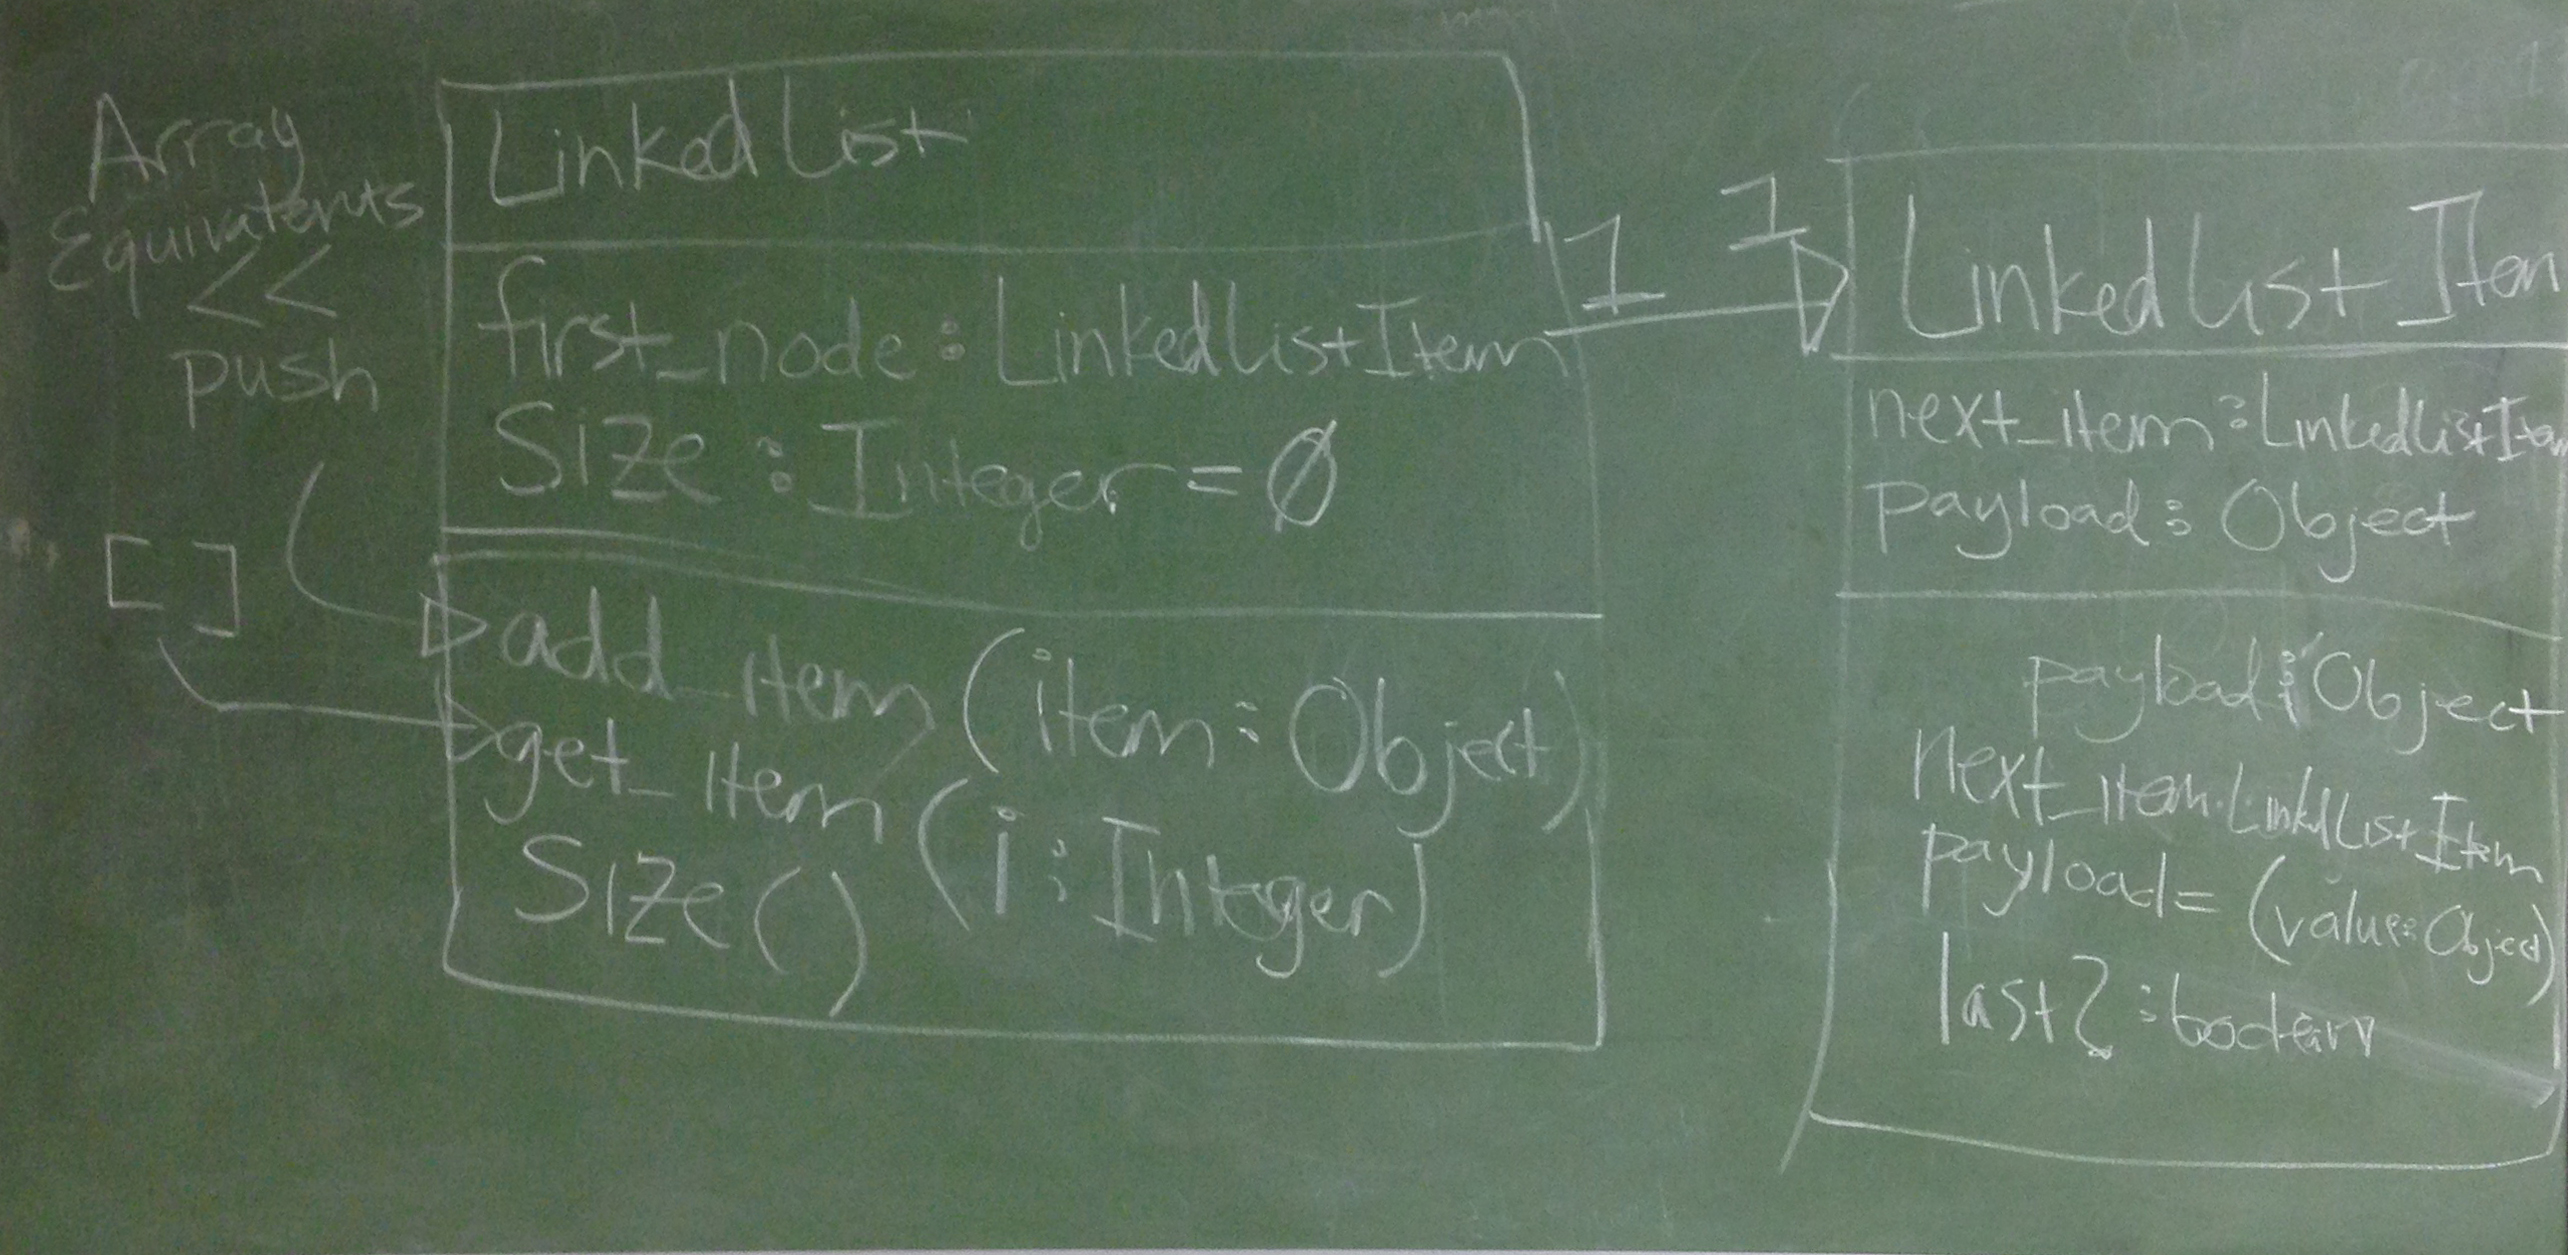 Array
Equivalents
<<
push
[ ]
LinkedList
first_node : LinkedListItem
Size : Integer = Ø
add_item (item : Object)
get_item (i : Integer)
Size()
1 1
LinkedList Item
next_item : LinkedListItem
payload : Object
payload : Object
next_item : LinkedListItem
payload = (value : Object)
last? : boolean